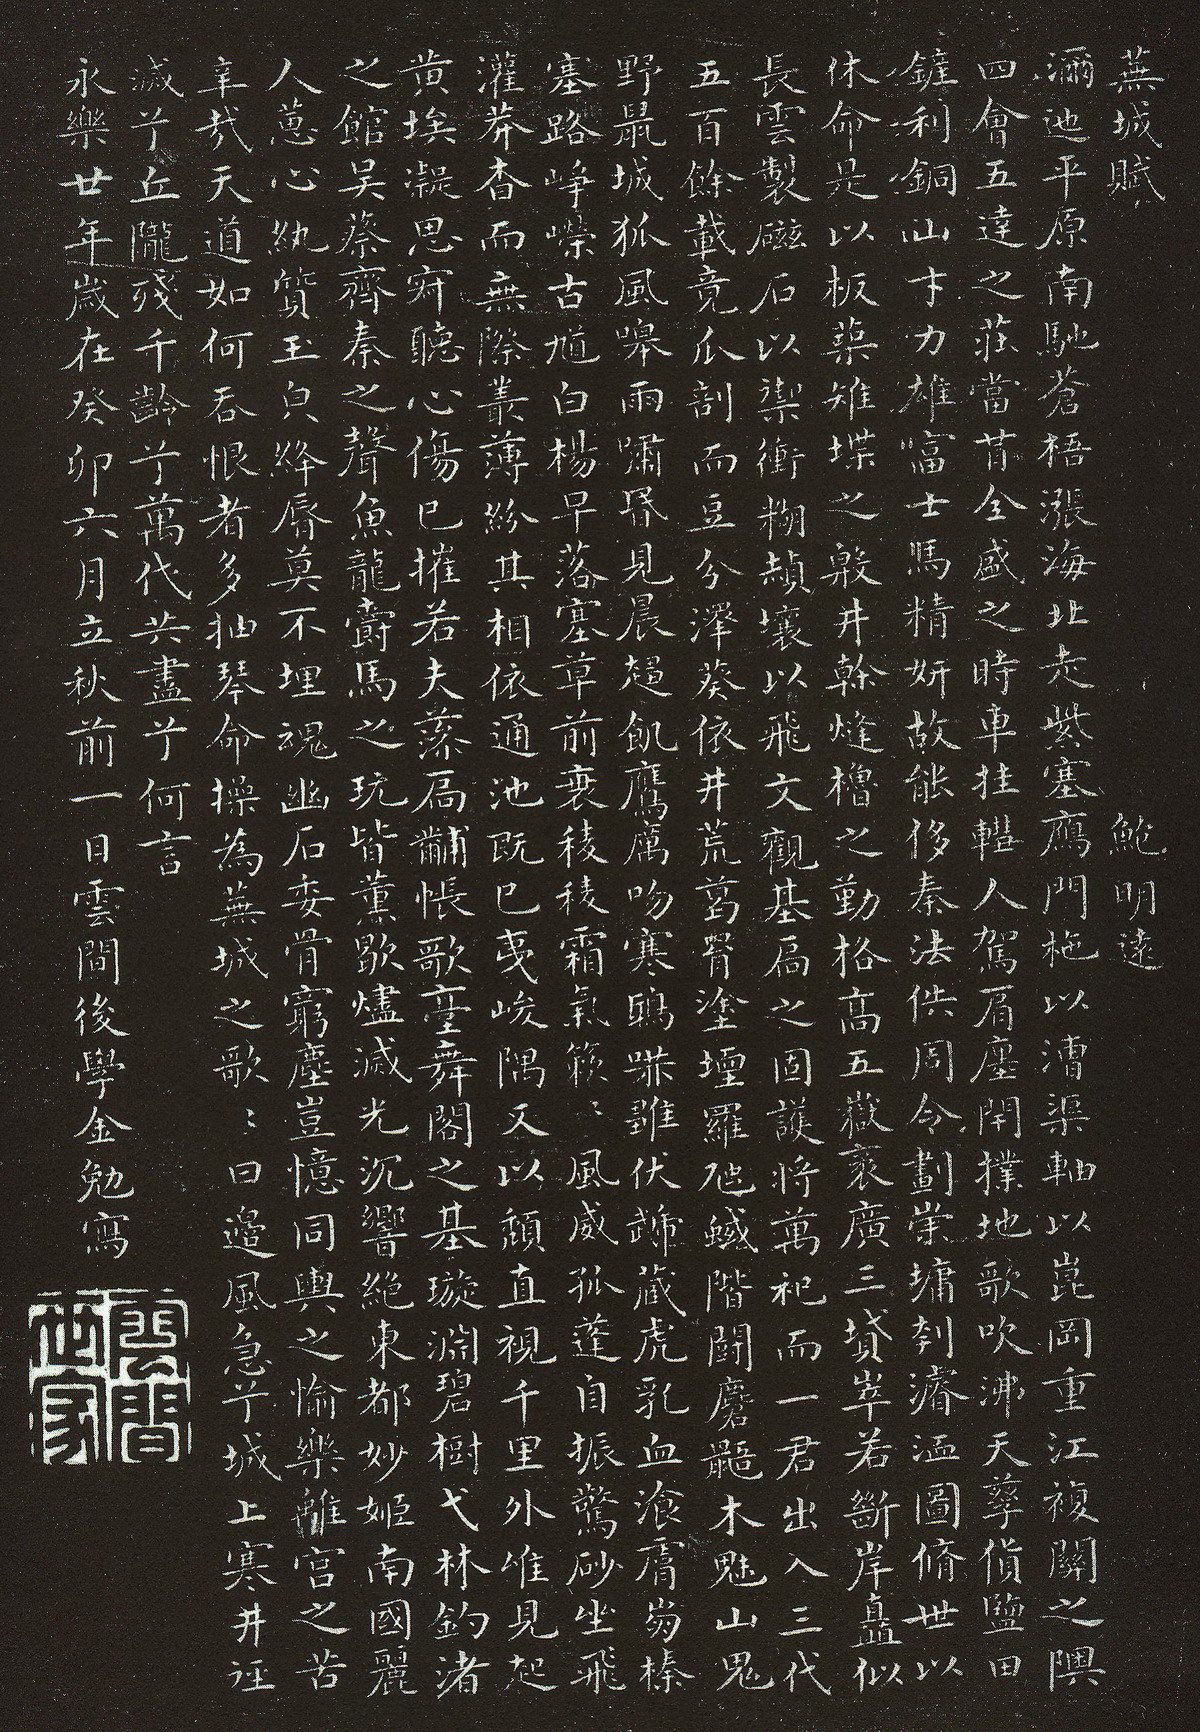 蕪城賦 鮑明遠
濔迆平原南馳蒼梧漲海北走紫塞鴈門柂以漕渠軸以崑岡重江複關之隩
四會五達之莊當昔全盛之時車挂轊人駕肩廛閈撲地歌吹沸天孳貨鹽田
鏟利銅山才力雄富士馬精妍故能侈秦法佚周令劃崇墉刳濬洫圖脩世以
休命是以板築雉堞之殷井幹烽櫓之勤格高五嶽袤廣三墳崒若斷岸矗似
長雲製磁石以禦衝糊頳壤以飛文觀基扃之固護將萬祀而一君出入三代
五百餘載竟瓜剖而豆分澤葵依井荒葛罥塗壇羅虺蜮階鬭麏鼯木魅山鬼
野鼠城狐風嘷雨嘯昏見晨趨飢鷹厲吻寒鴟嚇雛伏虣藏虎乳血飡膚崩榛
塞路崢嶸古馗白楊早落塞草前衰稜稜霜氣簌〻風威孤蓬自振驚砂坐飛
灌莽杳而無際叢薄紛其相依通池既已夷峻隅又以頹直視千里外唯見起
黄埃凝思寂聽心傷已摧若夫藻扃黼帳歌臺舞閣之基璇淵碧樹弋林釣渚
之館吳蔡齊秦之聲魚龍爵馬之玩皆薰歇燼滅光沉響絶東都妙姬南國麗
人蕙心紈質玉皃絳脣莫不埋魂幽石委骨窮塵豈憶同輿之愉樂離宫之苦
辛㢤天道如何吞恨者多抽琴命操為蕪城之歌〻曰邊風急兮城上寒井逕
滅兮丘隴殘千齡兮萬代共盡兮何言
永樂廿年歲在癸卯六月立秋前一日雲間後學金勉寫